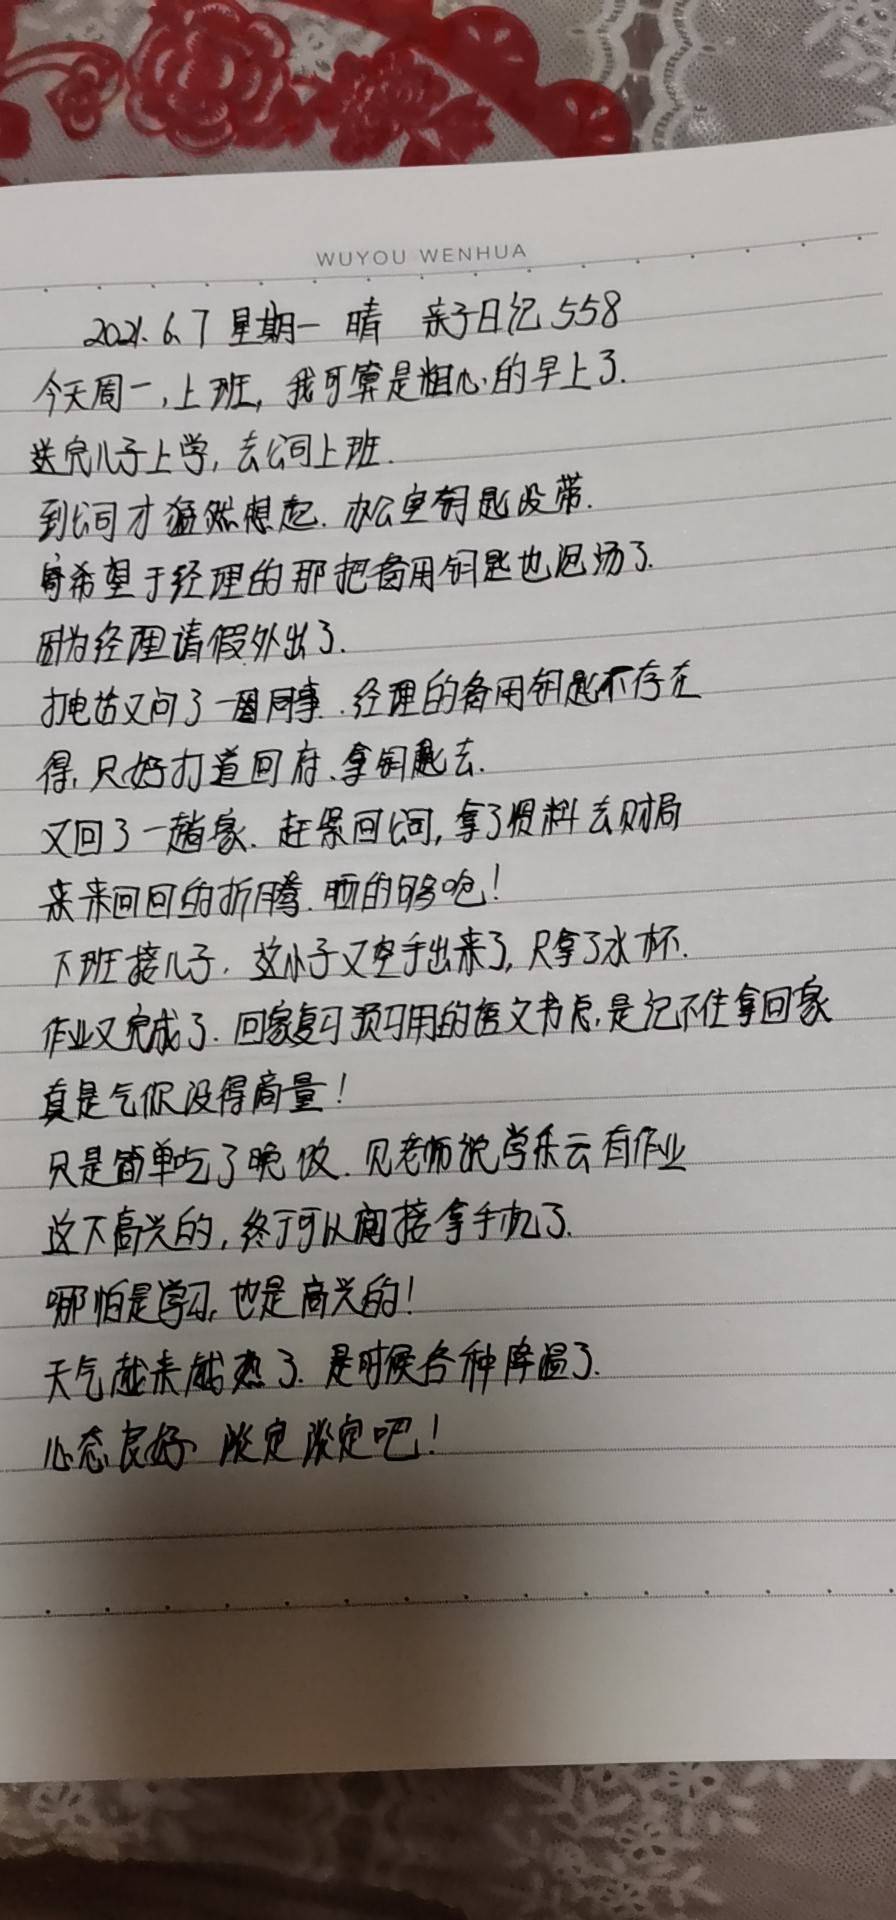 WUYOU WENHUA
2021.6.7 星期一 晴 亲子日记 558
今天周一,上班,我可算是粗心的早上了.
送完儿子上学,去公司上班.
到公司才猛然想起.办公室钥匙没带.
寄希望于经理的那把备用钥匙也泡汤了.
因为经理请假外出了.
打电话又问了一圈同事.经理的备用钥匙不存在
得,只好打道回府、拿钥匙去.
又回了一趟家.赶紧回公司,拿了资料去财局
来来回回的折腾.晒的够呛!
下班接儿子.这小子又空手出来了,只拿了水杯.
作业又完成了.回家复习预习用的语文书总是记不住拿回家
真是气你没得商量!
只是简单吃了晚饭.见老师说学乐云有作业
这下高兴的,终于可以间接拿手机了.
哪怕是学习,也是高兴的!
天气越来越热了.是时候各种降温了.
心态良好、淡定淡定吧!